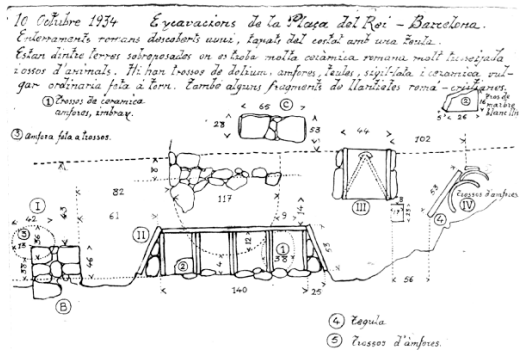 10 Octubre 1934 Excavacions de la Plaça del Rei - Barcelona.
Enterraments romans descoberts avui, tapats del costat amb una teula.
Estan dintre terres sobreposades on es troba molta ceràmica romana molt trossejada
i ossos d'animals. Hi han trossos de dolium, àmfores, teules, sigil·lata i ceramica vul-
gar ordinaria feta à torn. També alguns fragments de llantietes romà-cristianes.
① Trossos de ceramica
amfores, imbrex.
③ Amfora feta a trossos.
Tros de
marbre
blanc
5 26 16
65 C
28 53
44 102
82 117
61 9 14
I 42 43
③ 36
18
38 46
B
II ② 4 12 ① 18 25
140 25
III
8
17 23
53 IV
Trossos d'àmfores
④
56
④ Tegula
⑤ Trossos d'àmfores.